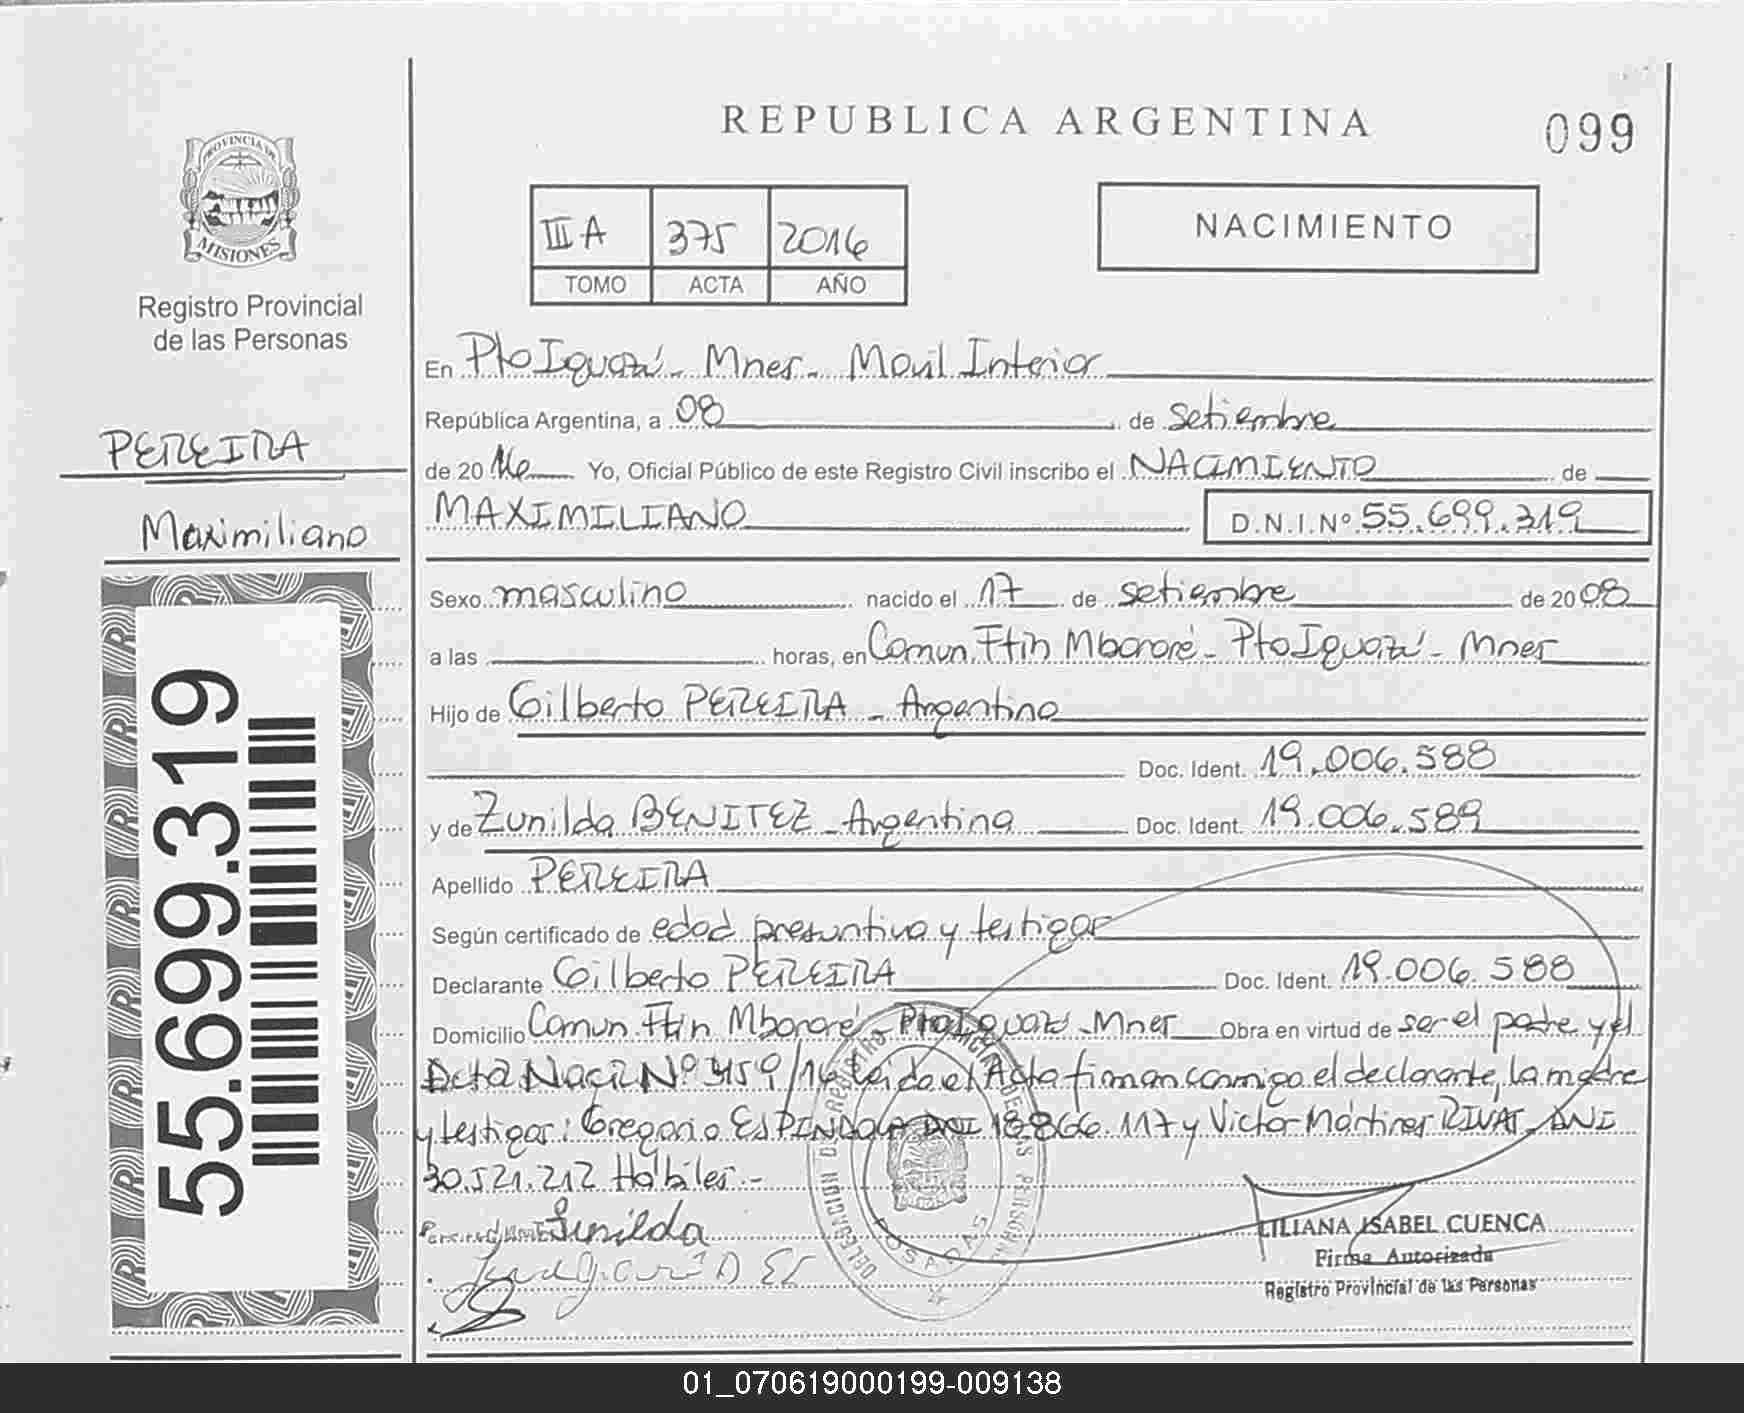 REPUBLICA ARGENTINA
099
PROVINCIA DE
MISIONES
Registro Provincial
de las Personas
III A 375 2016
TOMO ACTA AÑO
NACIMIENTO
PEREIRA
Maximiliano
55.699.319
En Pto Iguazú - Mnes - Movil Interior
República Argentina, a 08 de setiembre
de 2016 Yo, Oficial Público de este Registro Civil inscribo el NACIMIENTO de
MAXIMILIANO D.N.I.Nº 55.699.319
Sexo masculino nacido el 17 de setiembre de 2008
a las horas, en Comun. Ftin Mbororé - Pto Iguazú - Mnes
Hijo de Gilberto PEREIRA - Argentino
Doc. Ident. 19.006.588
y de Zunilda BENITEZ - Argentina Doc. Ident. 19.006.589
Apellido PEREIRA
Según certificado de edad presuntiva y testigos
Declarante Gilberto PEREIRA Doc. Ident. 19.006.588
Domicilio Comun. Ftin Mbororé - Pto Iguazú - Mnes Obra en virtud de ser el padre y el
Acta Nac. Nº 3459/16 Leída el Acta firman conmigo el declarante, la madre
y testigos: Gregorio ESPINDOLA DNI 18.866.117 y Victor Martires RIVAS - DNI
30.521.212 Hábiles.-
Zunilda
DELEGACION DE REGISTRO PROVINCIAL DE LAS PERSONAS
POSADAS
LILIANA ISABEL CUENCA
Firma Autorizada
Registro Provincial de las Personas
01_070619000199-009138